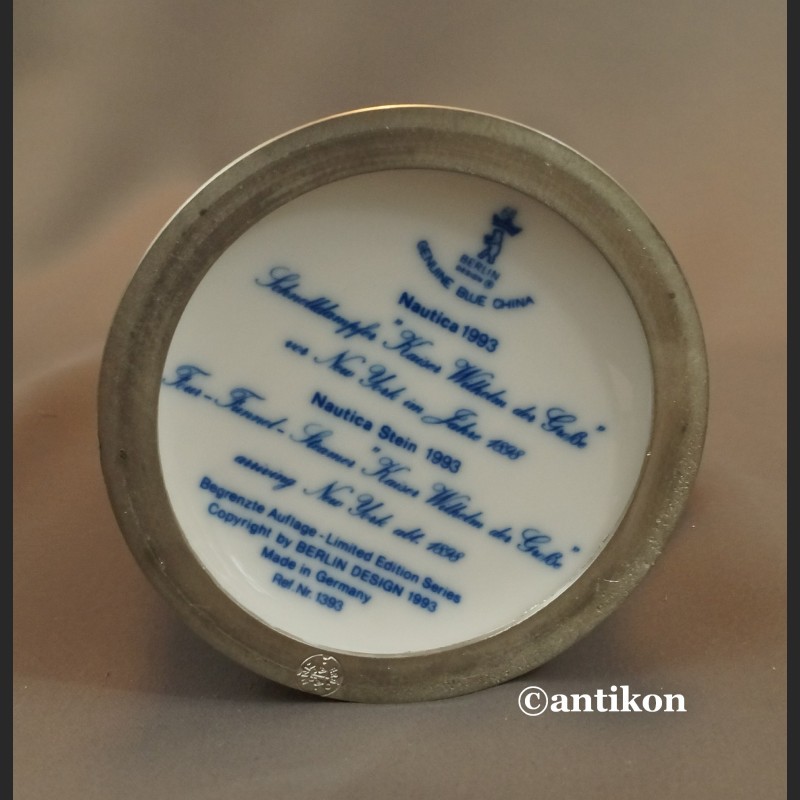 BERLIN
DESIGN ®
GENUINE BLUE CHINA
Nautica 1993
Schnelldampfer "Kaiser Wilhelm der Große"
vor New York im Jahre 1898
Nautica Stein 1993
Four-Funnel-Steamer "Kaiser Wilhelm der Große"
arriving New York abt. 1898
Begrenzte Auflage - Limited Edition Series
Copyright by BERLIN DESIGN 1993
Made in Germany
Ref. Nr. 1393
©antikon